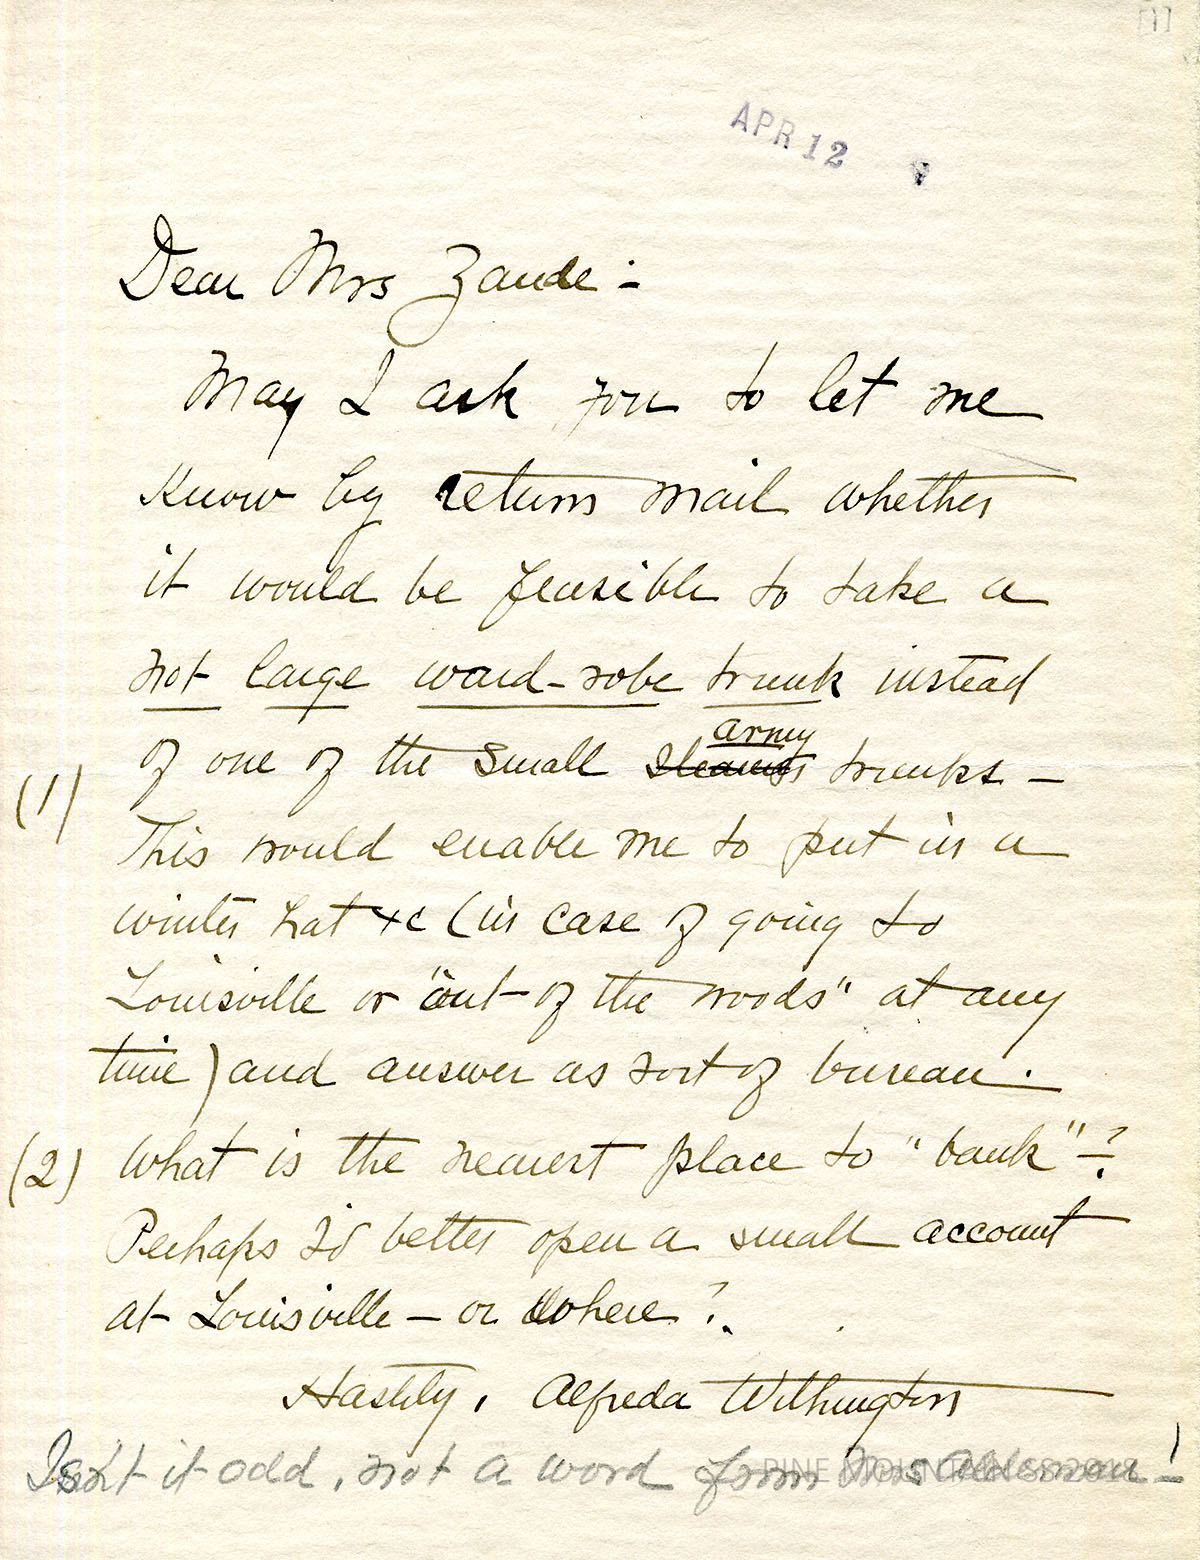 [1]
APR 12
Dear Mrs Zande :-
May I ask you to let me
know by return mail whether
it would be feasible to take a
not large ward-robe trunk instead
army
of one of the small trunks —
(1)
This would enable me to put in a
winter hat &c (in case of going to
Louisville or "out-of the woods" at any
time) and answer as sort of bureau.
(2) What is the nearest place to "bank" - ?
Perhaps I'd better open a small account
at Louisville — or where ?
Hastily, Alfreda Withington
Isn't it odd, not a word from Mrs !
PINE MOUNTAIN SS 2018